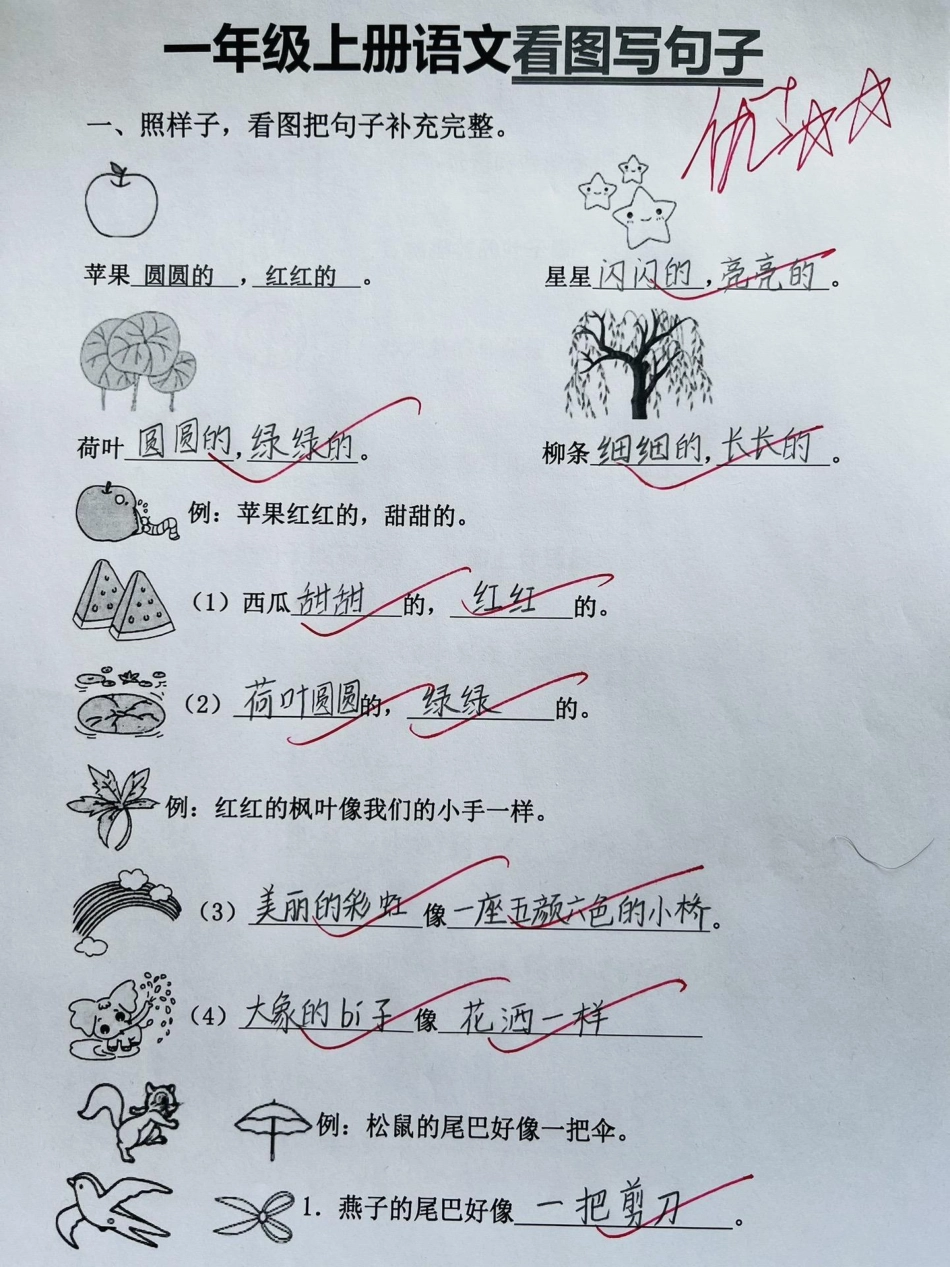 一年级上册语文看图写句子
优
一、照样子，看图把句子补充完整。
苹果 圆圆的 ，红红的 。
星星闪闪的，亮亮的。
荷叶圆圆的，绿绿的。
柳条细细的，长长的。
例：苹果红红的，甜甜的。
（1）西瓜甜甜的，红红的。
（2）荷叶圆圆的，绿绿的。
例：红红的枫叶像我们的小手一样。
（3）美丽的彩虹像一座五颜六色的小桥。
（4）大象的bi子像花洒一样
例：松鼠的尾巴好像一把伞。
1. 燕子的尾巴好像一把剪刀。